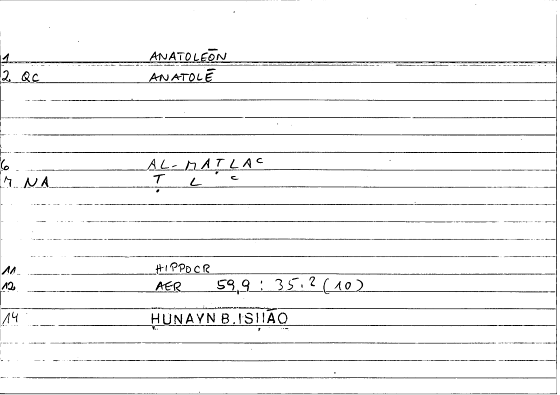 1 ANATOLEŌN
2 QC ANATOLĒ
6 AL-MAṬLAC
7 NA Ṭ L C
11 HIPPOCR
12 AER 59,9 : 35.2 (10)
14 ḤUNAYN B.ISḤĀQ